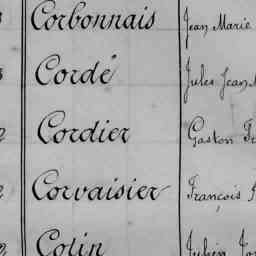 Corbonnais Jean Marie
Cordé Jules Jean
Cordier Gaston
Corvaisier François
Colin Julien